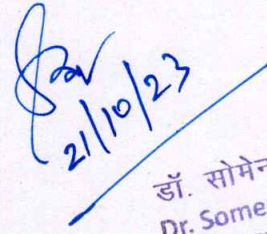 21/10/23
डॉ. सोमेन
Dr. Some